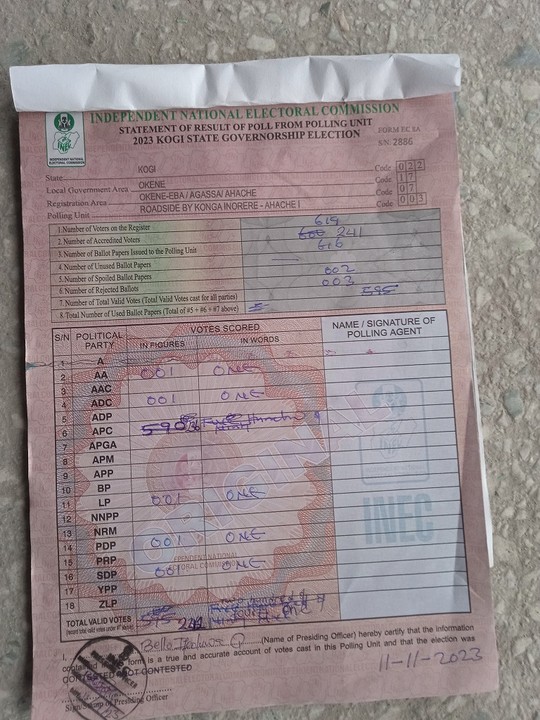 INDEPENDENT NATIONAL ELECTORAL COMMISSION
STATEMENT OF RESULT OF POLL FROM POLLING UNIT
2023 KOGI STATE GOVERNORSHIP ELECTION
FORM EC 8A
S/N: 2886
INDEPENDENT NATIONAL
ELECTORAL COMMISSION
State KOGI Code 022
Local Government Area OKENE Code 17
Registration Area OKENE-EBA / AGASSA/ AHACHE Code 07
Polling Unit ROADSIDE BY KONGA INORERE - AHACHE I Code 003
1.Number of Voters on the Register 619
2.Number of Accredited Voters 241
3.Number of Ballot Papers Issued to the Polling Unit 616
4.Number of Unused Ballot Papers
5.Number of Spoiled Ballot Papers 002
6.Number of Rejected Ballots 003
7.Number of Total Valid Votes (Total Valid Votes cast for all parties) 595
8.Total Number of Used Ballot Papers (Total of #5 + #6 + #7 above)
S/N POLITICAL PARTY VOTES SCORED NAME / SIGNATURE OF POLLING AGENT
IN FIGURES IN WORDS
1 A
2 AA 001 ONE
3 AAC
4 ADC 001 ONE
5 ADP
6 APC 590
7 APGA
8 APM
9 APP
10 BP
11 LP 001 ONE
12 NNPP
13 NRM
14 PDP 001 ONE
15 PRP
16 SDP 001 ONE
17 YPP
18 ZLP
TOTAL VALID VOTES 595
ORIGINAL
INEC
I, Bello (Name of Presiding Officer) hereby certify that the information
contained form is a true and accurate account of votes cast in this Polling Unit and that the election was
CONTESTED / NOT CONTESTED 11-11-2023
Sign/Stamp of Presiding Officer